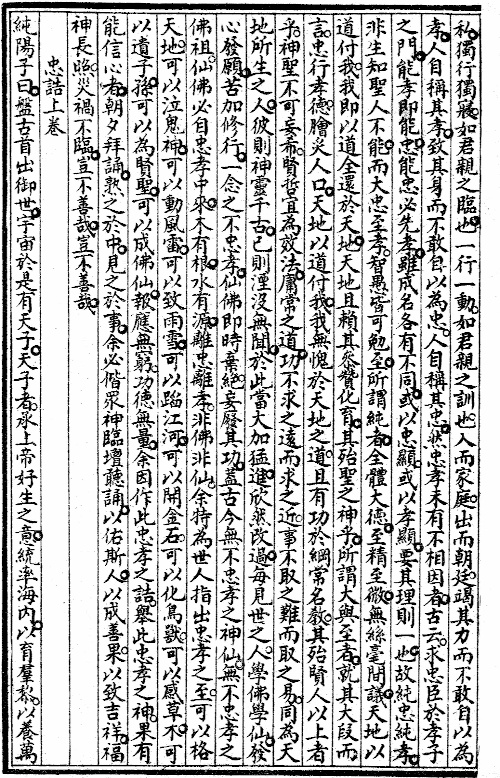 私獨行獨寢如君親之臨也一行一動如君親之訓也人而家庭出而朝廷竭其力而不敢自以為
孝人自稱其孝致其身而不敢自以為忠人自稱其忠然忠孝未有不相因者古云求忠臣於孝子
之門能孝即能忠能忠必先孝雖成名各有不同或以忠顯或以孝顯要其理則一也故純忠純孝
非生知聖人不能而大忠至孝智愚皆可勉至所謂純者全體大德至精至微無絲毫間議天地以
道付我我即以道全還於天地天地且賴其參贊化育其殆聖之神乎所謂大與至者就其大段而
言忠行孝德膾炙人口天地以道付我我無愧於天地之道且有功於綱常名教其殆賢人以上者
乎神聖不可妄希賢哲宜為效法庸常之道功不求之遠而求之近事不取之難而取之易同為天
地所生之人彼則神靈千古己則湮沒無聞於此當大加猛進欣然改過每見世之人學佛學仙發
心發願苦加修行一念之不忠孝仙佛即時棄絕妄廢其功蓋古今無不忠孝之神仙無不忠孝之
佛祖仙佛必自忠孝中來木有根水有源離忠離孝非佛非仙余特為世人指出忠孝之至可以格
天地可以泣鬼神可以動風雷可以致雨雪可以蹈江河可以開金石可以化鳥獸可以感草木可
以遺子孫可以為賢聖可以成佛仙報應無窮功德無量余因作此忠孝之誥舉此忠孝之神果有
能信心者朝夕拜誦熟之於中見之於事余必偕眾神臨壇聽誦以佑斯人以成善果以致吉祥福
神長照災禍不臨豈不善哉豈不善哉
忠誥上卷
純陽子曰盤古首出御世宇宙於是有天子天子者承上帝好生之意統率海內以育羣黎以養萬